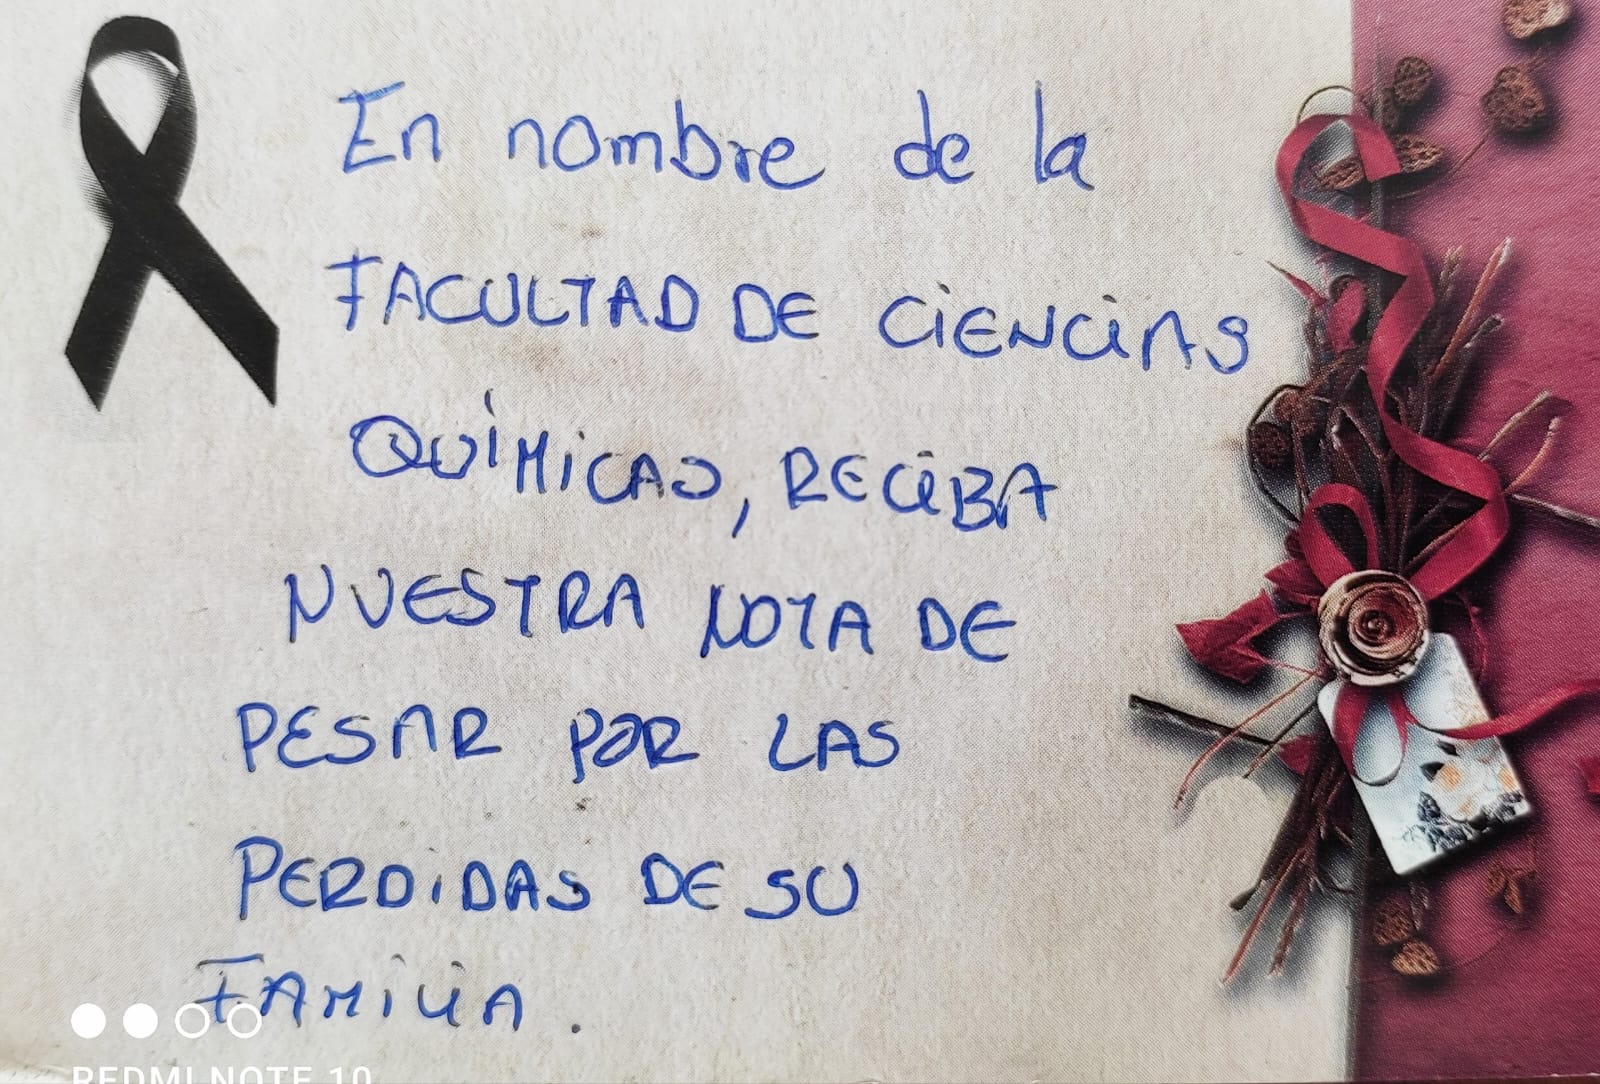 En nombre de la
FACULTAD DE CIENCIAS
QUÍMICAS, RECIBA
NUESTRA NOTA DE
PESAR POR LAS
PERDIDAS DE SU
FAMILIA.
REDMI NOTE 10